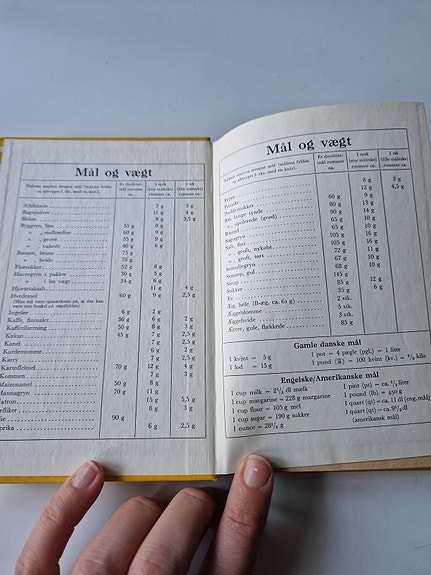 Mål og vægt
Et deciliter-
mål rummer
ca.
1 spsk
(stor måleske)
rummer ca.
1 tsk
(lille måleske)
rummer ca.
Allehånde 7 g 3 g
Bagepulver 11 g 4 g
Birkes 9 g 3,5 g
Byggryn, fine 55 g 8 g
60 g 9 g
grove 55 g 9 g
valsede 40 g 6 g
Bønner, brune 75 g
hvide 78 g
Flormelis
Havregryn i pakker
i løs vægt 34 g 6 g
Hjortetaksalt 11 g 4 g
Hvedemel 60 g 9 g 2,5 g
Ingefær 6 g 2 g
Kaffe, formalet 36 g 6 g 2 g
Kaffetilberedning 50 g 8 g 3 g
Kakao 45 g 7 g 2,5 g
Kanel 7 g 2,5 g
Kardemomme 6 g 2 g
Karry 7 g 2,5 g
Kartoffelmel 70 g 12 g 4 g
Kommen 7 g 3 g
Maizenamel 50 g 8 g
Mannagryn 70 g 11 g
atron 15 g 5,5 g
elliker 8 g 3 g
90 g
prika 6 g 2,5 g
Mål og vægt
Et deciliter-
mål rummer
ca.
1 spsk
(stor måleske)
rummer
ca.
1 tsk
(lille måleske)
rummer ca.
Peber 8 g 3 g
12 g 4,5 g
Puddersukker 60 g 9 g
Ris, lange tynde 80 g 13 g
(grød) 90 g 14 g
Rasmel 65 g 10 g
Sagogryn 65 g 10 g
Salt, fint 105 g 16 g
groft, nykøbt 105 g 16 g
groft, tørt 72 g 11 g
Semuljegryn 67 g 10 g
Sennep, gul 68 g 10 g
Sirup 145 g
Sukker 85 g 12 g
Te 35 g 6 g
Æg, hele (B-æg, ca. 61 g) 2 stk.
Æggeblomme 5 stk.
Æggehvide 3 stk.
Ærter, gule, flækkede 85 g
Gamle danske mål
1 kvint = 5 g
1 lod = 15 g
1 pot = 4 pægle (pgl.) = 1 liter
1 pund (℔) = 100 kvint (kv.) = ½ kilo
Engelske/Amerikanske mål
1 cup milk = 2¼ dl mælk
1 cup margarine = 228 g margarine
1 cup flour = 105 g mel
1 cup sugar = 190 g sukker
1 ounce = 28¼ g
1 pint (pt) = ca. ½ liter
1 pound (lb) = 450 g
1 quart (qt) = ca. 11 dl (eng. mål)
1 quart (qt) = ca. 9½ dl
(amerikansk mål)